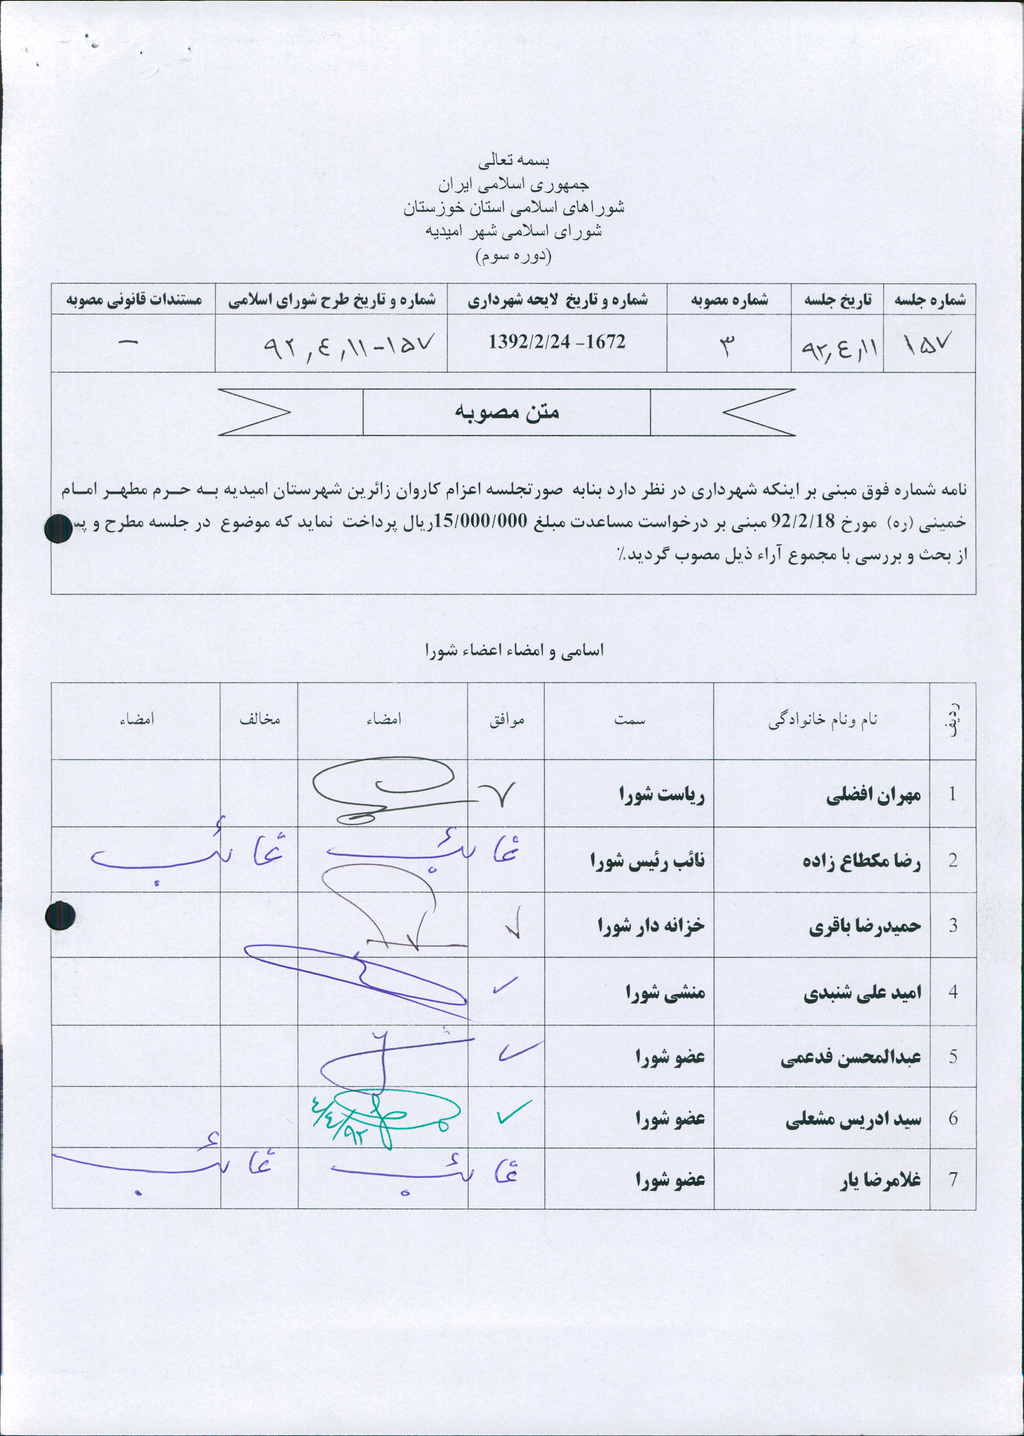 بسمه تعالی
جمهوری اسلامی ایران
شوراهای اسلامی استان خوزستان
شورای اسلامی شهر امیدیه
(دوره سوم)
شماره جلسه تاریخ جلسه شماره مصوبه شماره و تاریخ لایحه شهرداری شماره و تاریخ طرح شورای اسلامی مستندات قانونی مصوبه
۱۵۷ ۹۲,۴,۱۱ ۳ 1672– 1392/2/24 ۱۵۷-۹۲,۴,۱۱ –
متن مصوبه
نامه شماره فوق مبنی بر اینکه شهرداری در نظر دارد بنابه صورتجلسه اعزام کاروان زائرین شهرستان امیدیه به حرم مطهر امام
خمینی (ره) مورخ 92/2/18 مبنی بر درخواست مساعدت مبلغ 15/000/000ریال پرداخت نماید که موضوع در جلسه مطرح و پس
از بحث و بررسی با مجموع آراء ذیل مصوب گردید.٪
اسامی و امضاء اعضاء شورا
ردیف نام ونام خانوادگی سمت موافق امضاء مخالف امضاء
1 مهران افضلی ریاست شورا ✓
2 رضا مکطاع زاده نائب رئیس شورا غائب غائب
3 حمیدرضا باقری خزانه دار شورا ✓
4 امید علی شنبدی منشی شورا ✓
5 عبدالمحسن فدعمی عضو شورا ✓
6 سید ادریس مشعلی عضو شورا ✓ ۹۲/۴/۴
7 غلامرضا یار عضو شورا غائب غائب